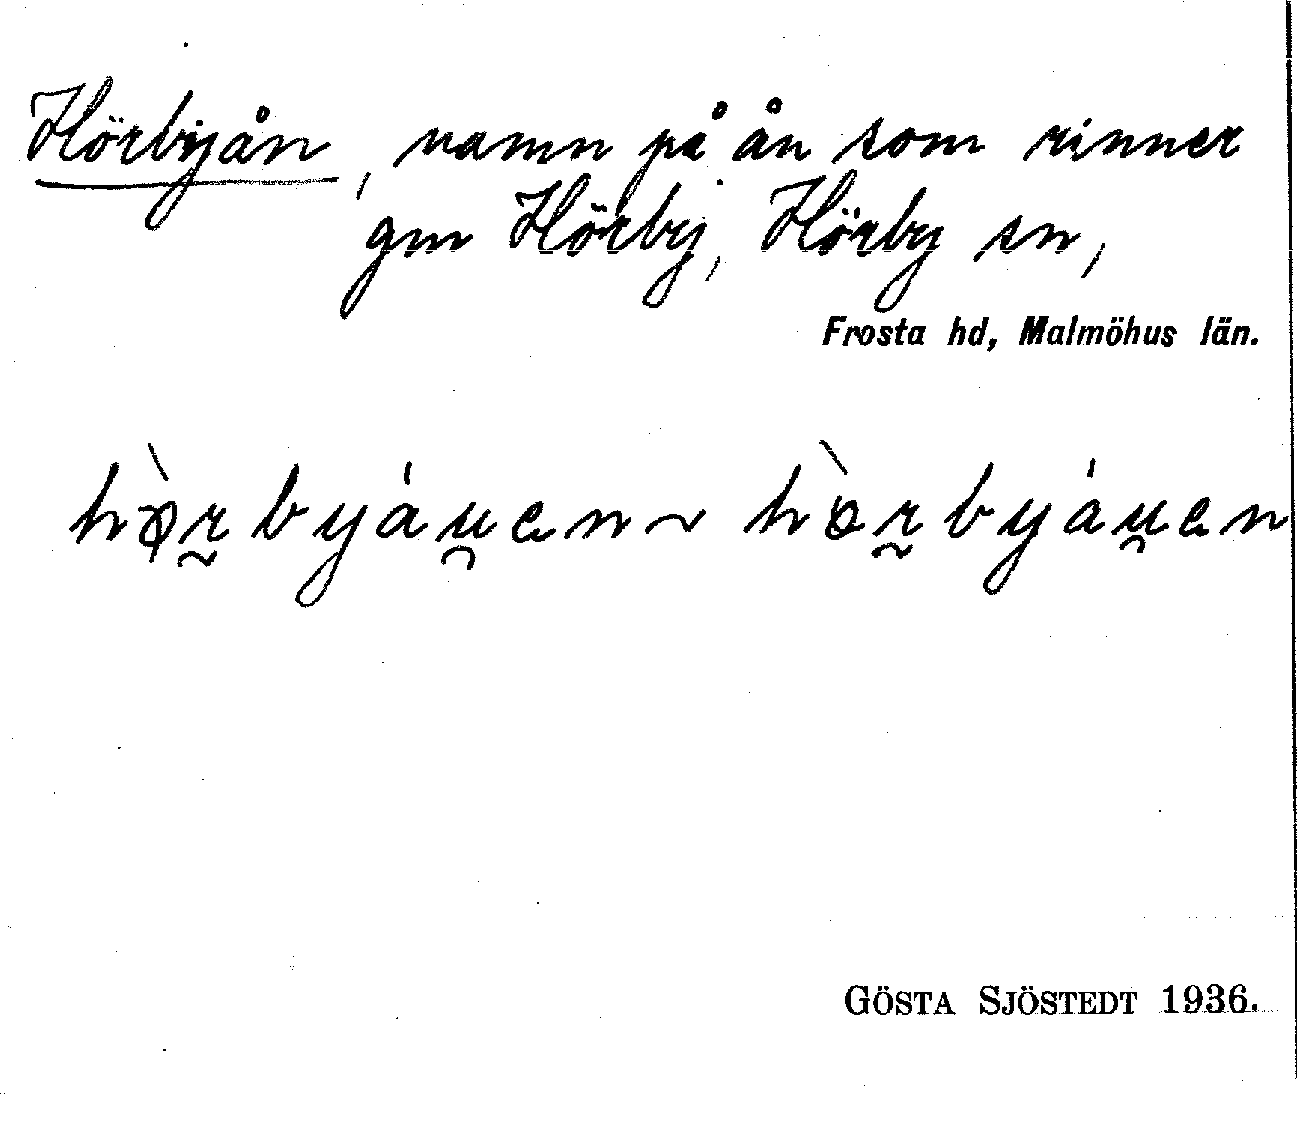 Hörbyån, namn på ån som rinner
gm Hörby, Hörby sn,
Frosta hd, Malmöhus län.
hø̀r̰byáu̯en ~ hòr̰byáu̯en
GÖSTA SJÖSTEDT 1936.